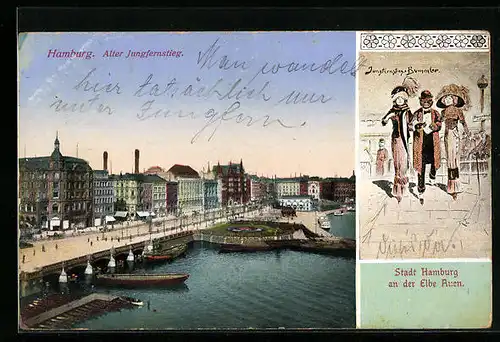 Hamburg. Alter Jungfernstieg.
Man wandelt
hier tatsächlich nur
unter Jungfern.
Jungfernstiegs-Bummler.
Stadt Hamburg
an der Elbe Auen.